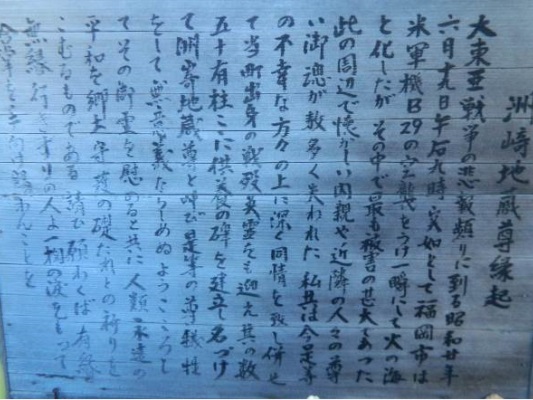 洲崎地蔵尊縁起
大東亜戦争の悲報頻りに到る昭和廿年
六月十九日午后九時突如として福岡市は
米軍機B29の空襲をうけ一瞬にして火の海
と化したが その中で最も被害の甚大であった
此の周辺で懐かしい肉親や近隣の人々の尊
い御魂が数多く失われた 私共は今是等
の不幸な方々の上に深く同情を致し併せ
て当町出身の戦歿英霊をも迎え其の数
五十有柱ここに供養の碑を建立し名づけ
て洲崎地蔵尊と呼び是等の尊い犠牲
をして無意義たらしめぬようこころし
てその御霊を慰めると共に人類永遠の
平和を郷土守護の礎たれとの祈りを
こむるものである 請い願わくば有縁
無縁行きずりの人よ一掬の涙をもって